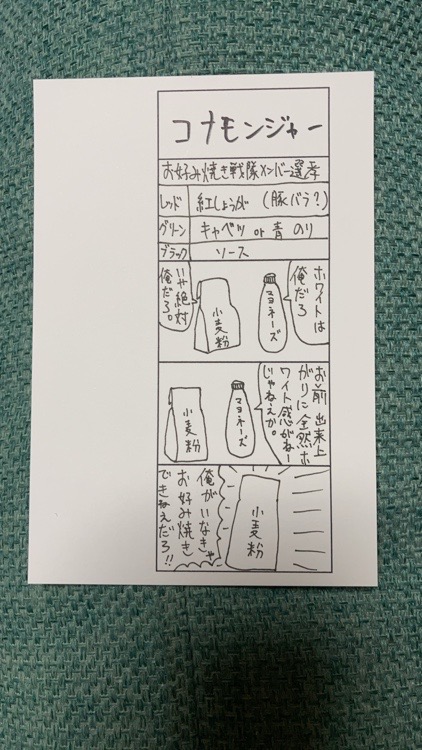 コナモンジャー
お好み焼き戦隊メンバー選考
レッド 紅しょうが (豚バラ?)
グリーン キャベツ or 青のり
ブラック ソース
ホワイトは
俺だろ
マヨネーズ
小麦粉
いや絶対
俺だろ。
お前出来上
がりに全然ホ
ワイト感がねー
じゃねえか。
マヨネーズ
小麦粉
小麦粉
俺がいなきゃ
お好み焼き
できねえだろ!!